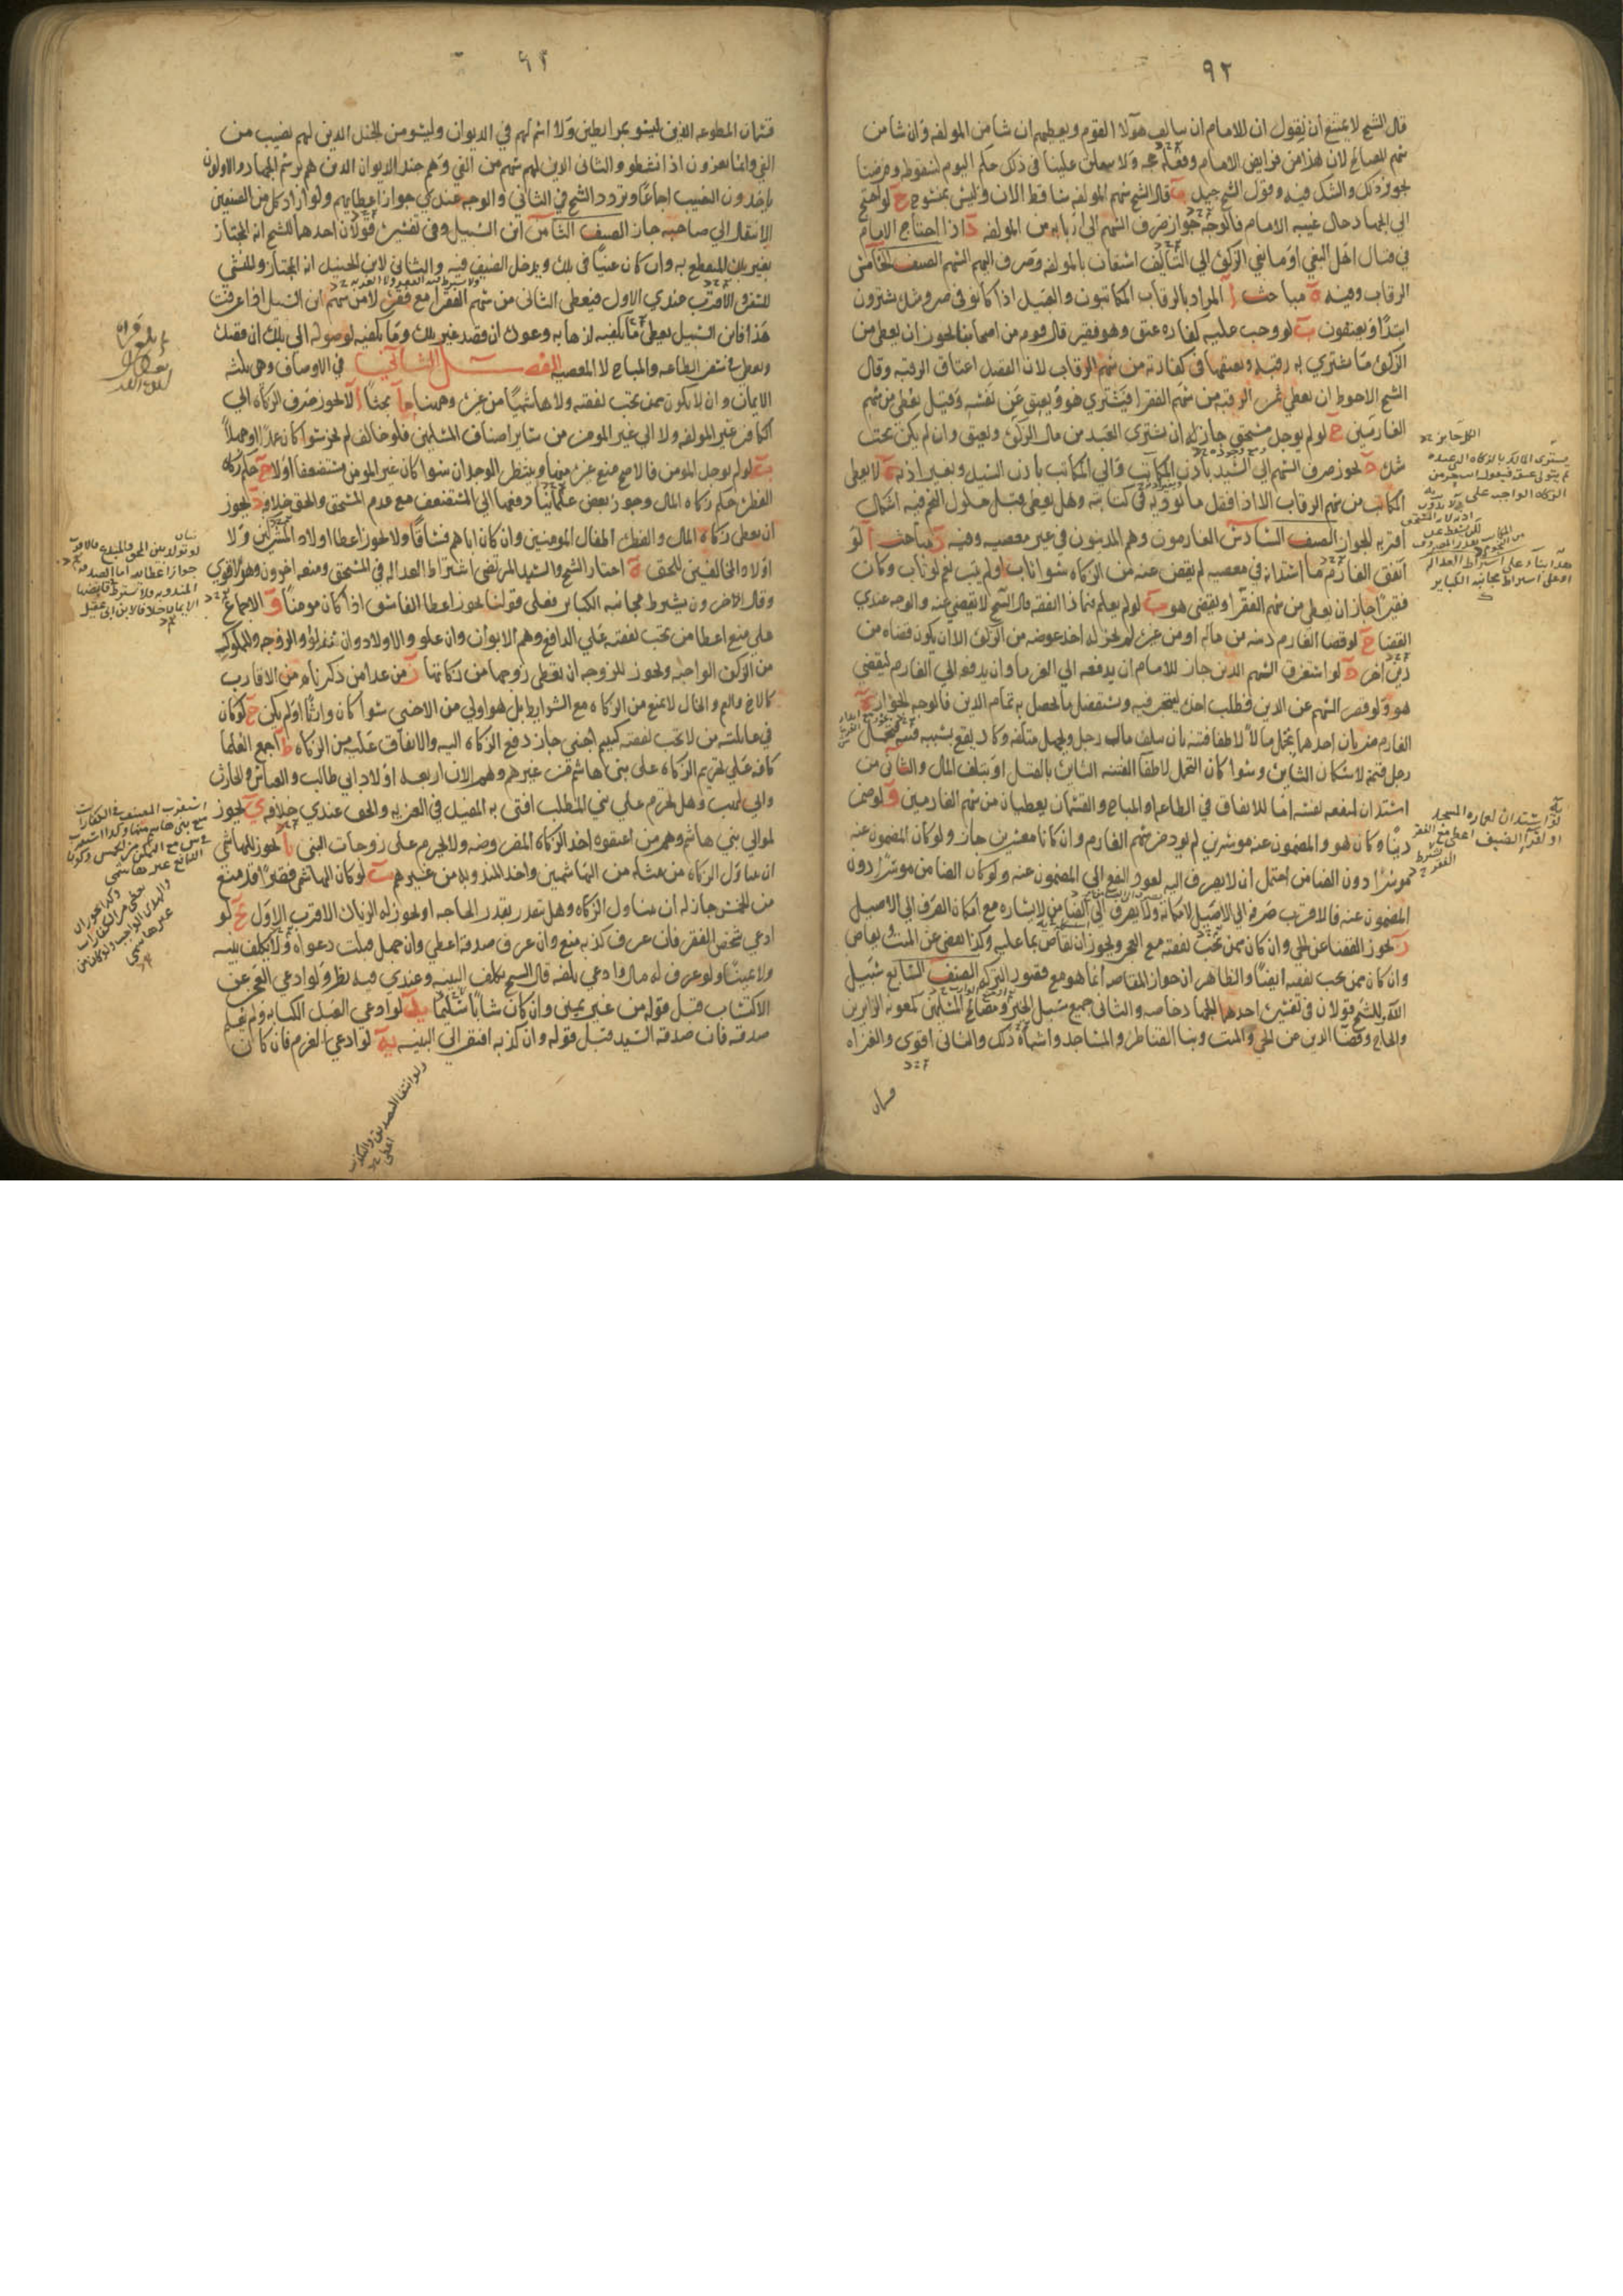 ٩٢
قال الشيخ لا يمتنع ان نقول ان للامام ان يتالف هؤلا القوم ويعطيهم ان شا من المولفه وان شا من
سهم المصالح لان هذا من فرايض الامام وفعله حجه ولا يتعلق علينا في ذلك حكم اليوم لسقوطه وفرضنا
تجويز ذلك والشك فيه وقول الشيخ جيد ب قال الشيخ سهم المولفه ساقط الان وليس بمنسوخ ج لو احتيج
الي الجهاد حال غيبه الامام فالوجه جواز صرف السهم الي اربابه من المولفه د اذا احتاج الامام
في قتال اهل البغي او مانعي الزكوة الي التاليف استعان بالمولفه وصرف اليهم السهم الصنف الخامس
الرقاب وفيه ه مباحث ا المراد بالرقاب المكاتبون والعبيد اذا كانو في ضر وشده يشترون
ابتدا ويعتقون ب لو وجب عليه كفاره عتق وهو فقير قال قوم من اصحابنا يجوز ان يعطي من
الزكوة ما يشتري به رقبه ويعتقها في كفارته من سهم الرقاب لان القصد اعتاق الرقبه وقال
الشيخ الاحوط ان يعطي ثمن الرقبه من سهم الفقرا فيشتري هو ويعتق عن نفسه وقيل يعطي من سهم
الغارمين ج لو لم يوجد مستحق جاز له ان يشتري العبد من مال الزكوة ويعتق وان لم يكن تحت
شده د يجوز صرف السهم الي السيد باذن المكاتب والي المكاتب باذن السيد وبغير اذنه ه لا يعطي
المكاتب من سهم الرقاب الا اذا فقد ما يوديه في كتابته وهل يعطي قبل حلول النجم فيه اشكال
اقربه الجواز الصنف السادس الغارمون وهم المدينون في غير معصيه وفيه ز مباحث ا لو
انفق الغارم ما استدانه في معصيه لم يقض عنه من الزكاه سوا تاب او لم يتب نعم لو تاب وكان
فقيرا جاز ان يعطي من سهم الفقرا ويقضي هو ب لو لم يعلم فيما ذا انفقه قال الشيخ لا يقضي عنه والوجه عندي
القضا ج لو قضا الغارم دينه من ماله او من غيره لم يجز له اخذ عوضه من الزكوة الا ان يكون قضاه من
دين اخر د لو استغرق السهم الدين جاز للامام ان يدفعه الي الغرما وان يدفعه الي الغارم ليقضي
هو ولو قصر السهم عن الدين وطلب اخذه ليتجر فيه ويستفضل ما يحصل به تمام الدين فالوجه الجواز ه
الغارم ضربان احدهما يتحمل مالا لاطفا فتنه بان يتلف مال رجل ويجهل متلفه وكاد يقع بسببه فتنه فتحمل
رجل قيمته لاسكان الثايره وسوا كان التحمل لاطفا الفتنه الثايره بالقتل او بتلف المال والثاني من
استدان لمنفعه نفسه اما للانفاق في الطاعه او المباح والقسمان يعطيان من سهم الغارمين و لو ضمن
دينا وكان هو والمضمون عنه موسرين لم يود من سهم الغارم وان كانا معسرين جاز ولو كان المضمون عنه
موسرا دون الضامن احتمل ان لا يصرف اليه لعود النفع الي المضمون عنه ولو كان الضامن موسرا دون
المضمون عنه فالاقرب صرفه الي الاصيل لامكانه ولا يصرف الي الضامن لايساره مع امكان الصرف الي الاصيل
ز يجوز القضا عن الحي وان كان ممن تجب نفقته مع العجز ويجوز ان يقاص بما عليه وكذا يقضي عن الميت ويقاص
وان كان ممن يجب نفقته ايضا والظاهر ان جواز المقاصه انما هو مع قصور التركه الصنف السابع سبيل
الله للشيخ قولان في تفسيره احدهما الجهاد خاصه والثاني جميع سبيل الخير ومصالح المسلمين كمعونه الزايرين
والحاج وقضا الدين من الحي والميت وبنا القناطر والمساجد واشباه ذلك والثاني اقوي والغزاه
قسمان
الكل جايز
يشتري المالك بالزكاه الي عنده
ثم يتولى عتقه
هذا بنا على اشتراط العداله
او على اشتراط مجانبه الكباير
لو استدان لعماره المسجد
او لقرا الضيف اعطي مع الفقر
٩٣
قسمان المطوعه الذين ليسو بمرابطين ولا اسم لهم في الديوان وليسو من الجند الذين لهم نصيب من
الفي وانما يغزون اذا نشطو والثاني الذين لهم سهم من الفي وهم جند الديوان الذين هم برسم الجهاد والاولون
ياخذون النصيب اجماعا وتردد الشيخ في الثاني والوجه عندي جواز اعطايهم ولو اراد كل من الصنفين
الانتقال الي صاحبه جاز الصنف الثامن ابن السبيل وفي تفسيره قولان احدهما للشيخ انه المجتاز
بغير بلده المنقطع به وان كان غنيا في بلده ويدخل الضيف فيه والثاني لابن الجنيد انه المجتاز والمنشي
للسفر والاقرب عندي الاول فيعطي الثاني من سهم الفقرا مع فقره لا من سهم ابن السبيل اذا عرفت
هذا فابن السبيل يعطي ما يكفيه لذهابه وعوده ان قصد غير بلده وما يكفيه لوصوله الي بلده ان قصده
ويعطي في سفر الطاعه والمباح لا المعصيه الفصل الثاني في الاوصاف وهي ثلثه
الايمان وان لا يكون ممن تجب نفقته ولا هاشميا من غيره وهيهنا بحثا ا لا يجوز صرف الزكاه الي
الكافر غير المولفه ولا الي غير المومن من ساير اصناف المسلمين فلو خالف لم يجز سوا كان عمدا او جهلا
ب لو لم يوجد المومن فالاصح منع غيره منها وينتظر الوجدان سوا كان غير المومن مستضعفا او لا ج حكم زكاه
الفطره حكم زكاه المال وجوز بعض علمائنا دفعها الي المستضعف مع عدم المستحق والحق خلافه د يجوز
ان يعطي زكاه المال والفطره اطفال المومنين وان كان اباهم فساقا ولا يجوز اعطا اولاد المشركين ولا
اولاد المخالفين للحق ه اختار الشيخ والسيد المرتضي اشتراط العداله في المستحق ومنعه اخرون وهو الاقوي
وقال اخرون يشترط مجانبه الكباير فعلي قولنا يجوز اعطا الفاسق اذا كان مومنا و الاجماع
علي منع اعطا من تجب نفقته علي الدافع وهم الابوان وان علو والاولاد وان نزلو والزوجه والمملوك
من الزكوة الواجبه ويجوز للزوجه ان تعطي زوجها من زكاتها ز من عدا من ذكرناه من الاقارب
كالاخ والعم والخال لا يمنع من الزكاه مع الشرايط بل هو اولي من الاجنبي سوا كان وارثا او لم يكن ح لو كان
في عائلته من لا تجب نفقته كيتيم اجنبي جاز دفع الزكاه اليه والانفاق عليه من الزكاه ط اجمع العلما
كافه علي تحريم الزكاه علي بني هاشم من غيرهم وهم الان اربعه اولاد ابي طالب والعباس والحارث
وابي لهب وهل تحرم علي بني المطلب افتي به المفيد في العزيه والحق عندي خلافه ي يجوز
لموالي بني هاشم وهم من اعتقوه اخذ الزكاه المفروضه ولا تحرم علي زوجات النبي يا يجوز للهاشمي
ان يتناول الزكاه من مثله من الهاشميين واخذ المندوبه من غيرهم يب لو كان الهاشمي فقيرا قد منع
من الخمس جاز له ان يتناول الزكاه وهل يتقدر بقدر الحاجه او يجوز له الزياده الاقرب الاول يج لو
ادعي شخص الفقر فان عرف كذبه منع وان عرف صدقه اعطي وان جهل قبلت دعواه ولا يكلف بينه
ولا يمينا ولو عرف له مال وادعي تلفه قال الشيخ يكلف البينه وعندي فيه نظر ولو ادعي العجز عن
الاكتساب قبل قوله من غير يمين وان كان شابا سليما يد لو ادعي العبد الكتابه ولم يعلم
صدقه فان صدقه السيد قبل قوله وان كذبه افتقر الي البينه يه لو ادعي الغرم فان كان
لو تولد بين المحق والمبدع فالاقرب
جواز اعطائه اما الصدقه
المندوبه فلا يشترط في قابضها
الايمان خلافا لابن ابي عقيل
ولو انتفا التصديق والتكذيب
اعطي